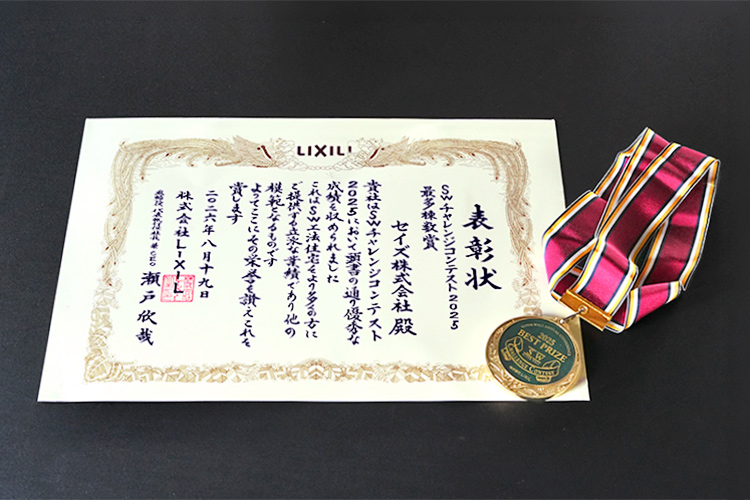 LIXIL
表彰状
SWチャレンジコンテスト2025
最多棟数賞
セイズ株式会社 殿
貴社はSWチャレンジコンテスト
2025において頭書の通り優秀な
成績を収められました
これはSW工法住宅をより多くの方に
ご提供する立派な業績であり他の
模範となるものです
よってここにその栄誉を讃えこれを
賞します
二〇二六年八月十九日
株式会社LIXIL
瀬戸欣哉
2025
BEST PRIZE
SW
CHALLENGE CONTEST